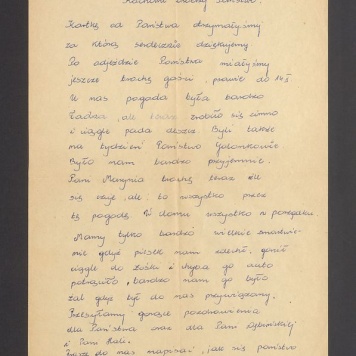 Kochani Drodzy Państwo!
Kartkę od Państwa otrzymaliśmy
za którą serdecznie dziękujemy
Po odjeździe Państwa mieliśmy
jeszcze trochę gości, prawie do 15
U nas pogoda była bardzo
ładna, ale teraz zrobiło się zimno
i ciągle pada deszcz. Byli także
na tydzień Państwo
Było nam bardzo przyjemnie.
Pani Marynia trochę teraz źle
się czuje, ale to wszystko przez
tą pogodę. W domu wszystko w porządku
Mamy tylko bardzo wielkie zmartwie-
nie gdyż piesek nam zdechł, gonił
ciągle do Zośki i chyba go auto
potrąciło, bardzo nam go było
żal gdyż był do nas przywiązany.
Przesyłamy gorące pozdrowienia
dla Państwa oraz dla Pani
i Pani Hali.
Proszę do nas napisać, jak się państwo